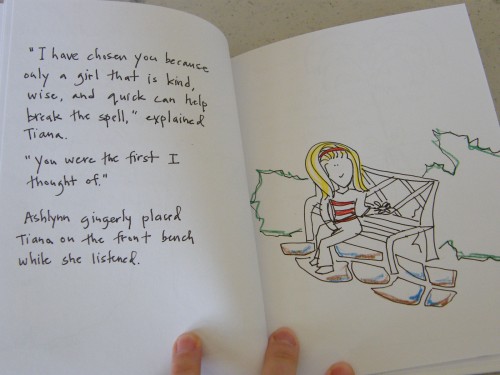 "I have chosen you because
only a girl that is kind,
wise, and quick can help
break the spell," explained
Tiana.
"You were the first I
thought of."
Ashlynn gingerly placed
Tiana on the front bench
while she listened.